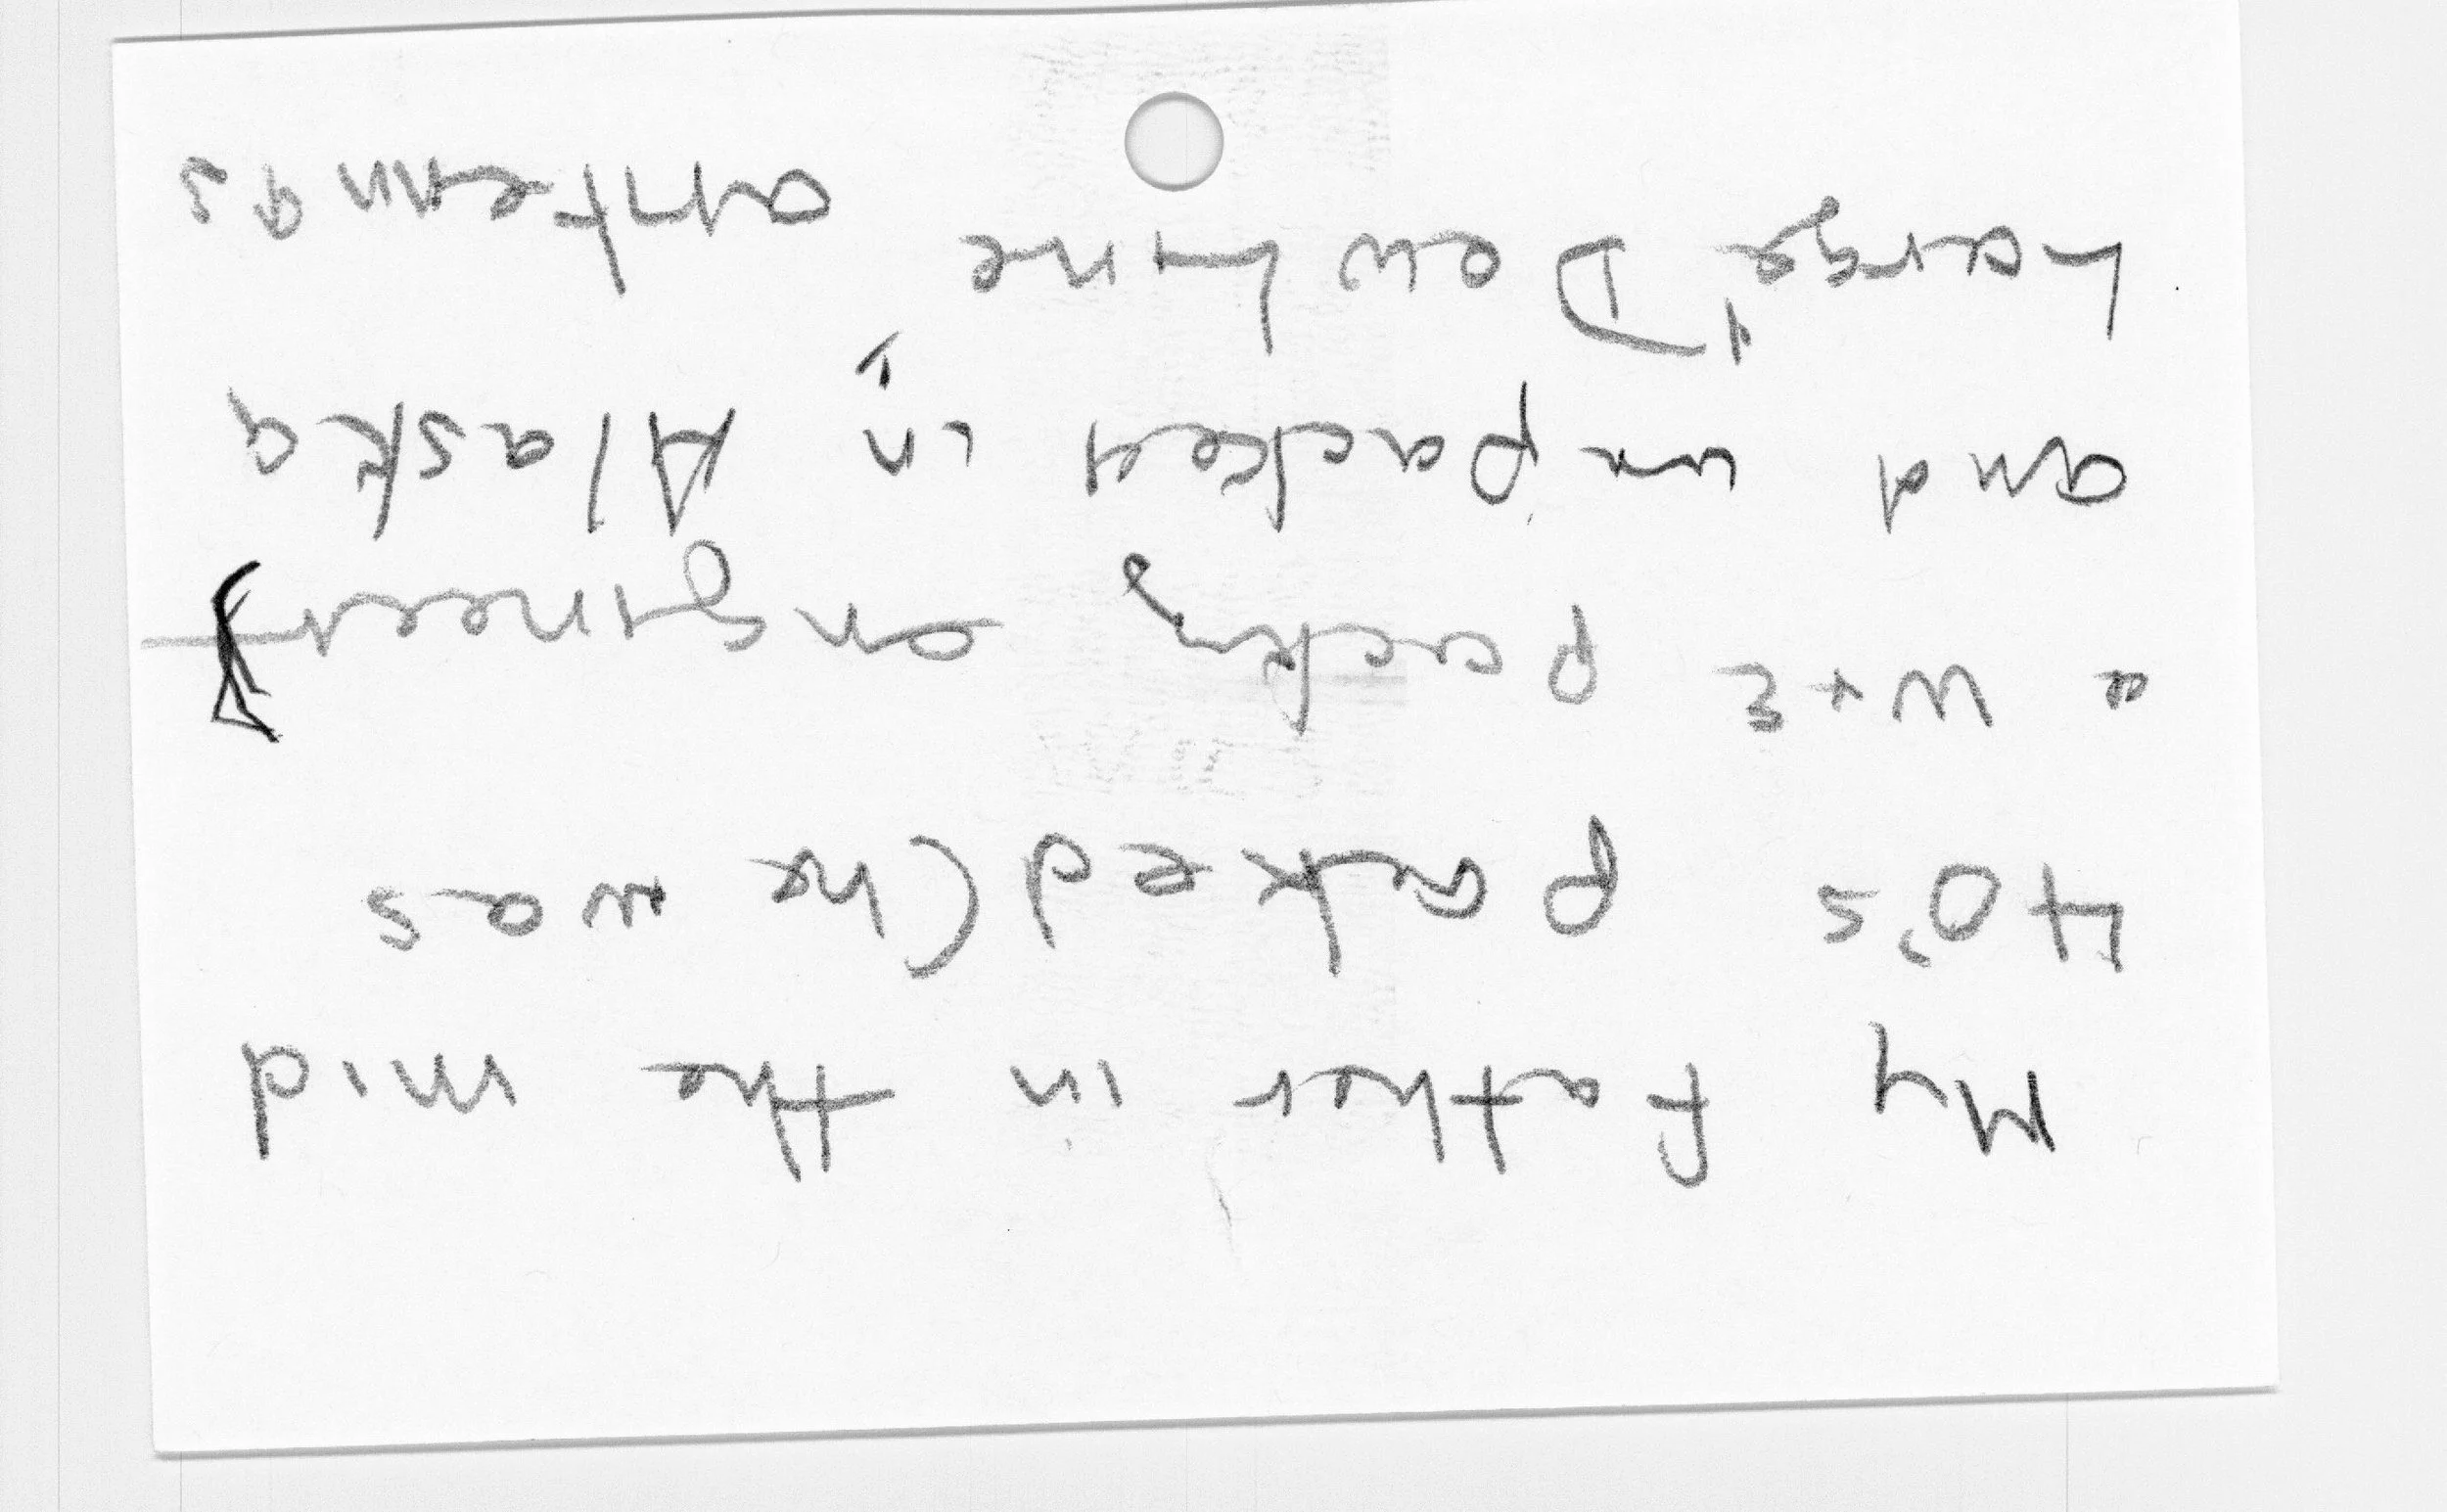 My father in the mid
40's packed (he was
a W+E packing engineer)
and unpacked in Alaska
Large "Dew Line" antennas